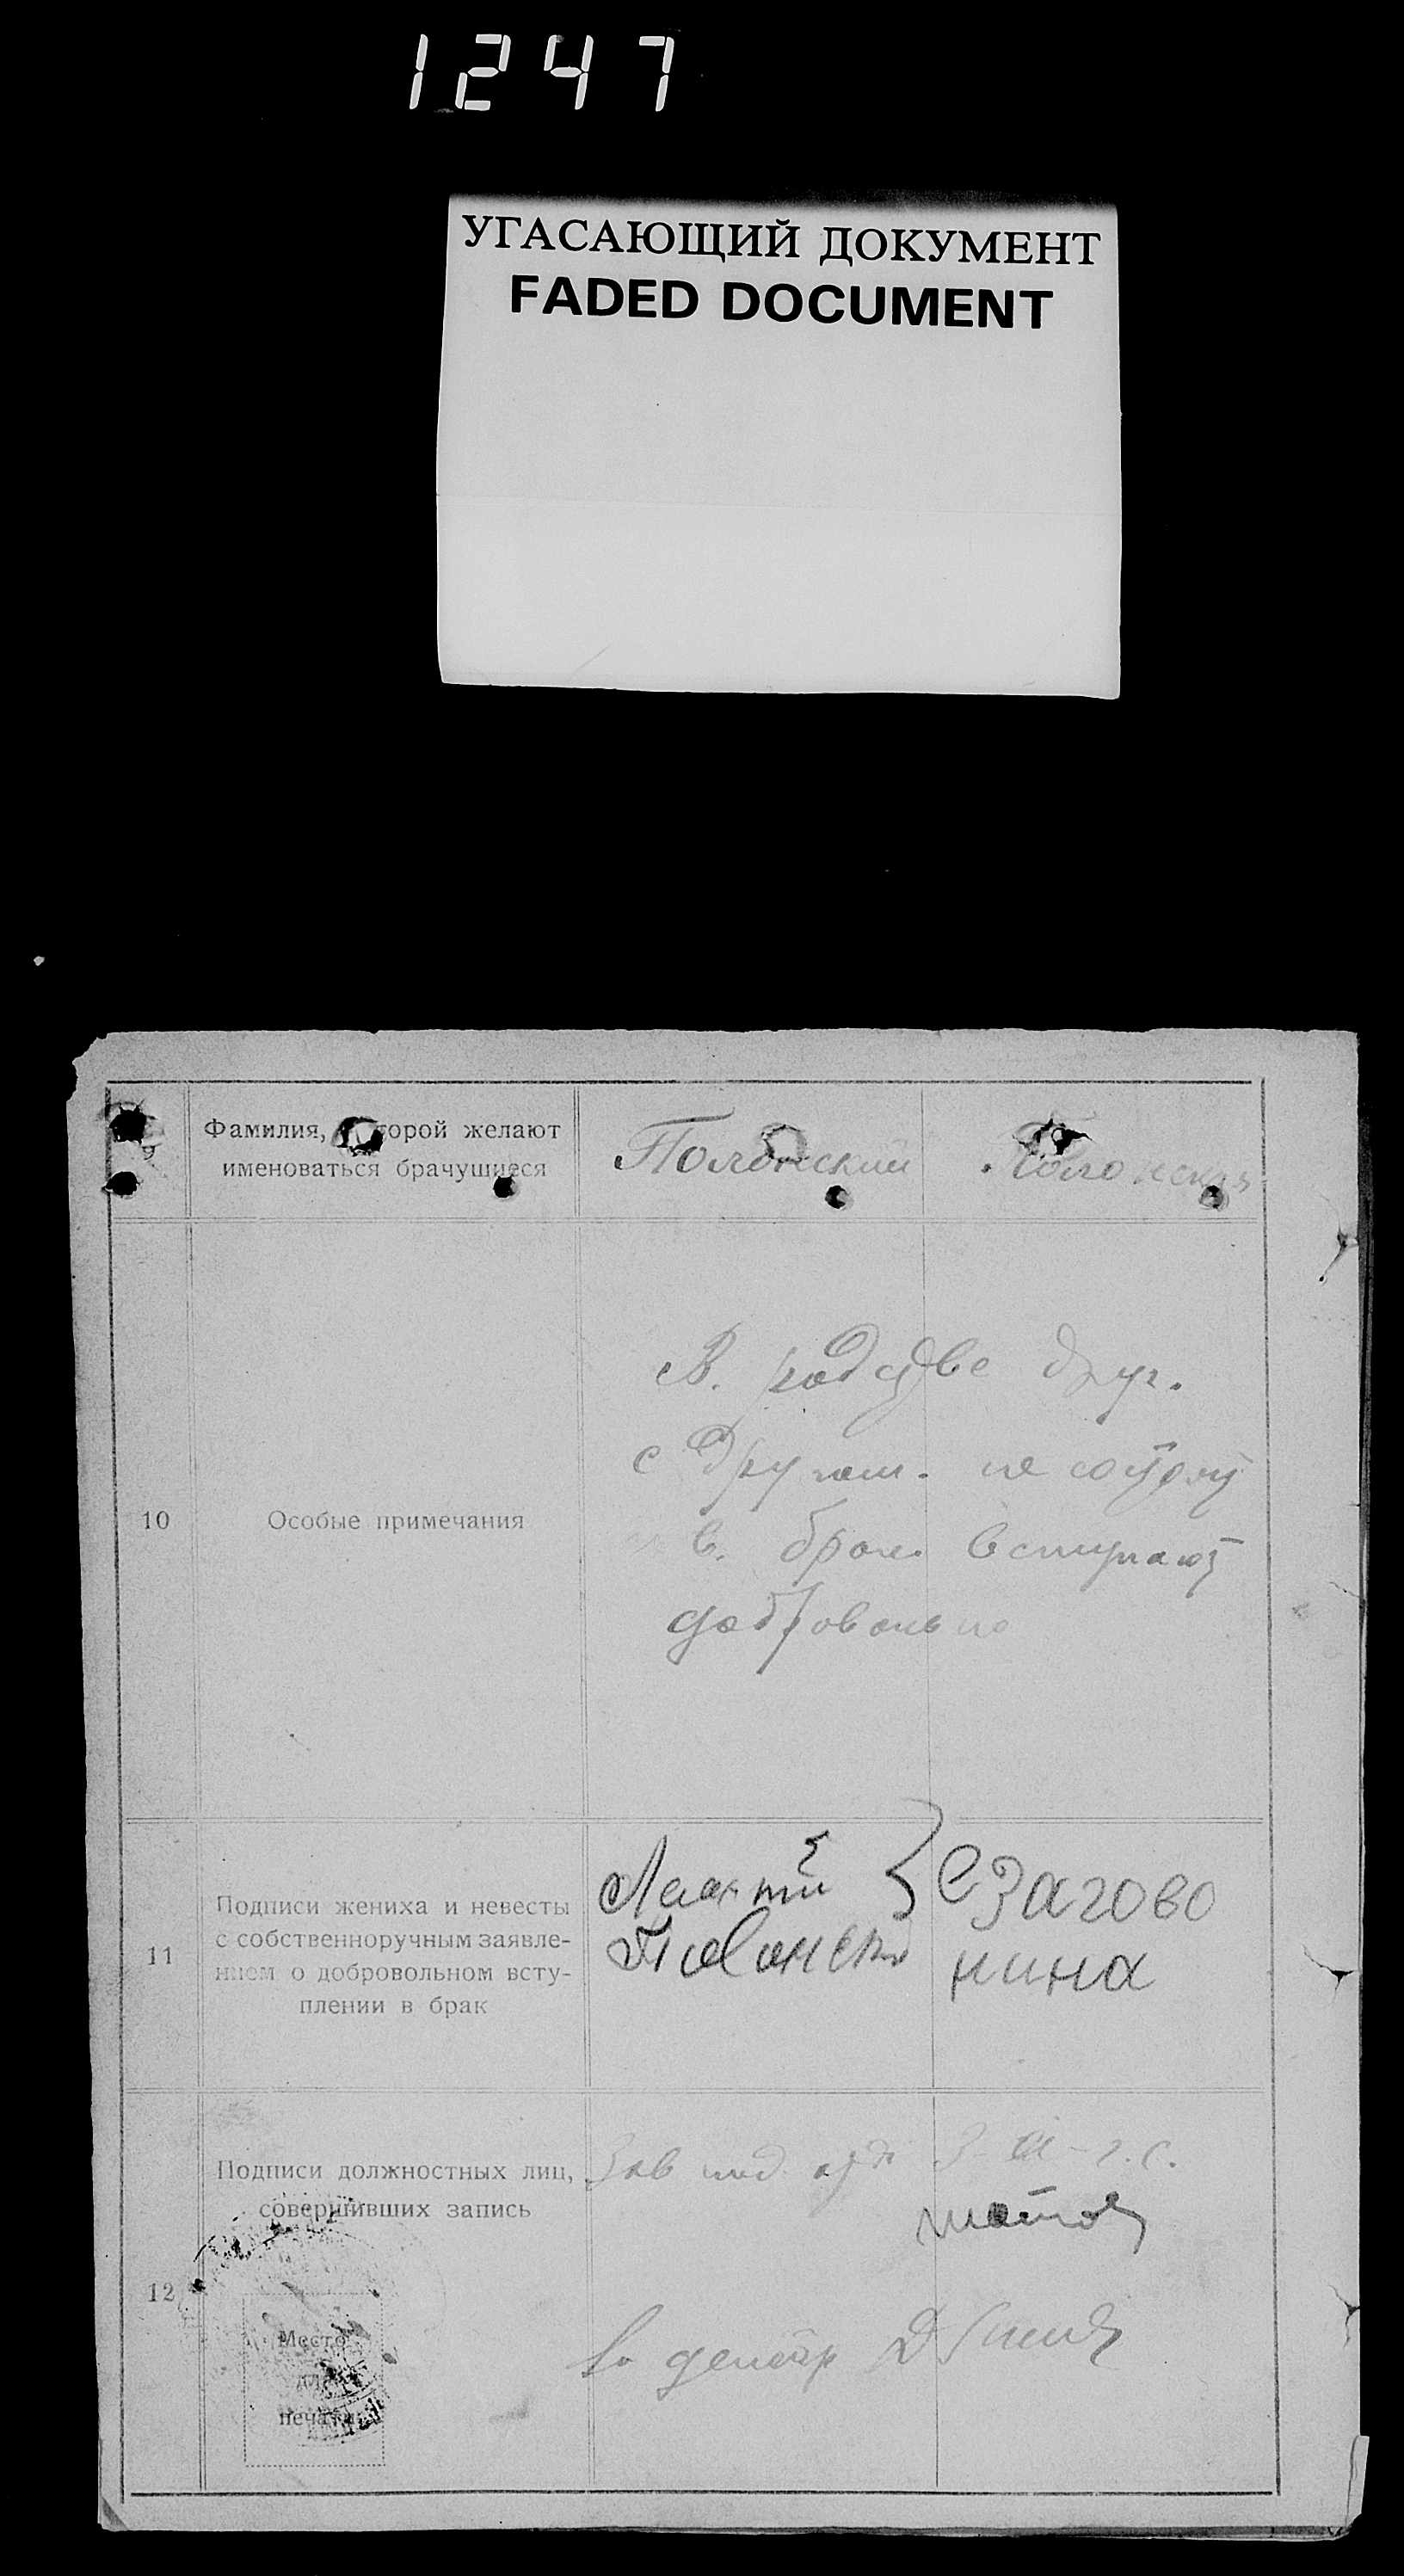 1247
УГАСАЮЩИЙ ДОКУМЕНТ
FADED DOCUMENT
9
Фамилия, которой желают
именоваться брачущиеся
Полонский
Полонская
10
Особые примечания
В родстве друг
с другом не состоят
в брак вступают
добровольно
11
Подписи жениха и невесты
с собственноручным заявле-
нием о добровольном всту-
плении в брак
Полонский
С Загово
нина
12
Подписи должностных лиц,
совершивших запись
Зав
г.с.
Место
для
печати